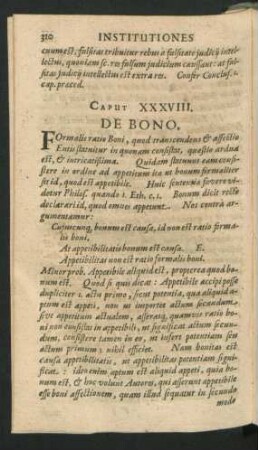 310 INSTITUTIONES
cuum est; falsitas tribuitur rebus à falsitate judicij intel-
lectus, quoniam sc. res falsum judicium causant: at fal-
sitas judicij intellectus est extra res. Confer Conclus.
cap. præced.
CAPUT XXXVIII.
DE BONO.
FOrmalis ratio Boni, quod transcendens & affectio
Entis statuitur in quonam consistat, quæstio ardua
est, & intricatissima. Quidam statuunt eam consi-
stere in ordine ad appetitum ita ut bonum formaliter
sit id, quod est appetibile. Huic sententiæ favere vi-
detur Philos. quando 1. Eth. c. 1. Bonum dicit recte
declarari id, quod omnes appetunt. Nos contrà ar-
gumentamur:
Cujuscunq; bonum est causa, id non est ratio forma-
lis boni,
At appetibilitatis bonum est causa. E.
Appetibilitas non est ratio formalis boni.
Minor prob. Appetibile aliquid est, propterea quod bo-
num est. Quod si quis dicat: Appetibile accipi posse
dupliciter 1. actu primo, seu potentia, quo aliquid aptum
est, ut appetatur, etiamsi non appetatur actu secundum,
seu appetitum actualem, asserang, quamvis ratio bo-
ni non consistat in appetibili, ut significat actum secun-
dum, consistere tamen in eo, ut infert potentiam seu
actum primum: nihil efficiet. Nam bonitas est
causa appetibilitatis, ut appetibilitas potentiam signi-
ficat: idem enim aptum est aliquid appeti, quia bo-
num est, & hoc volunt Autores, qui asserunt appetibile
esse boni affectionem, quam illud sequatur in secundo
modo